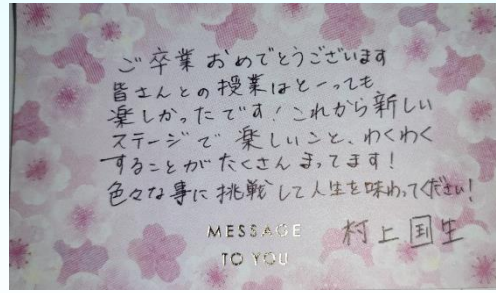 ご卒業おめでとうございます
皆さんとの授業はとーっても
楽しかったです！これから新しい
ステージで楽しいこと、わくわく
することがたくさんまってます！
色々な事に挑戦して人生を味わってください！
MESSAGE
TO YOU
村上国生